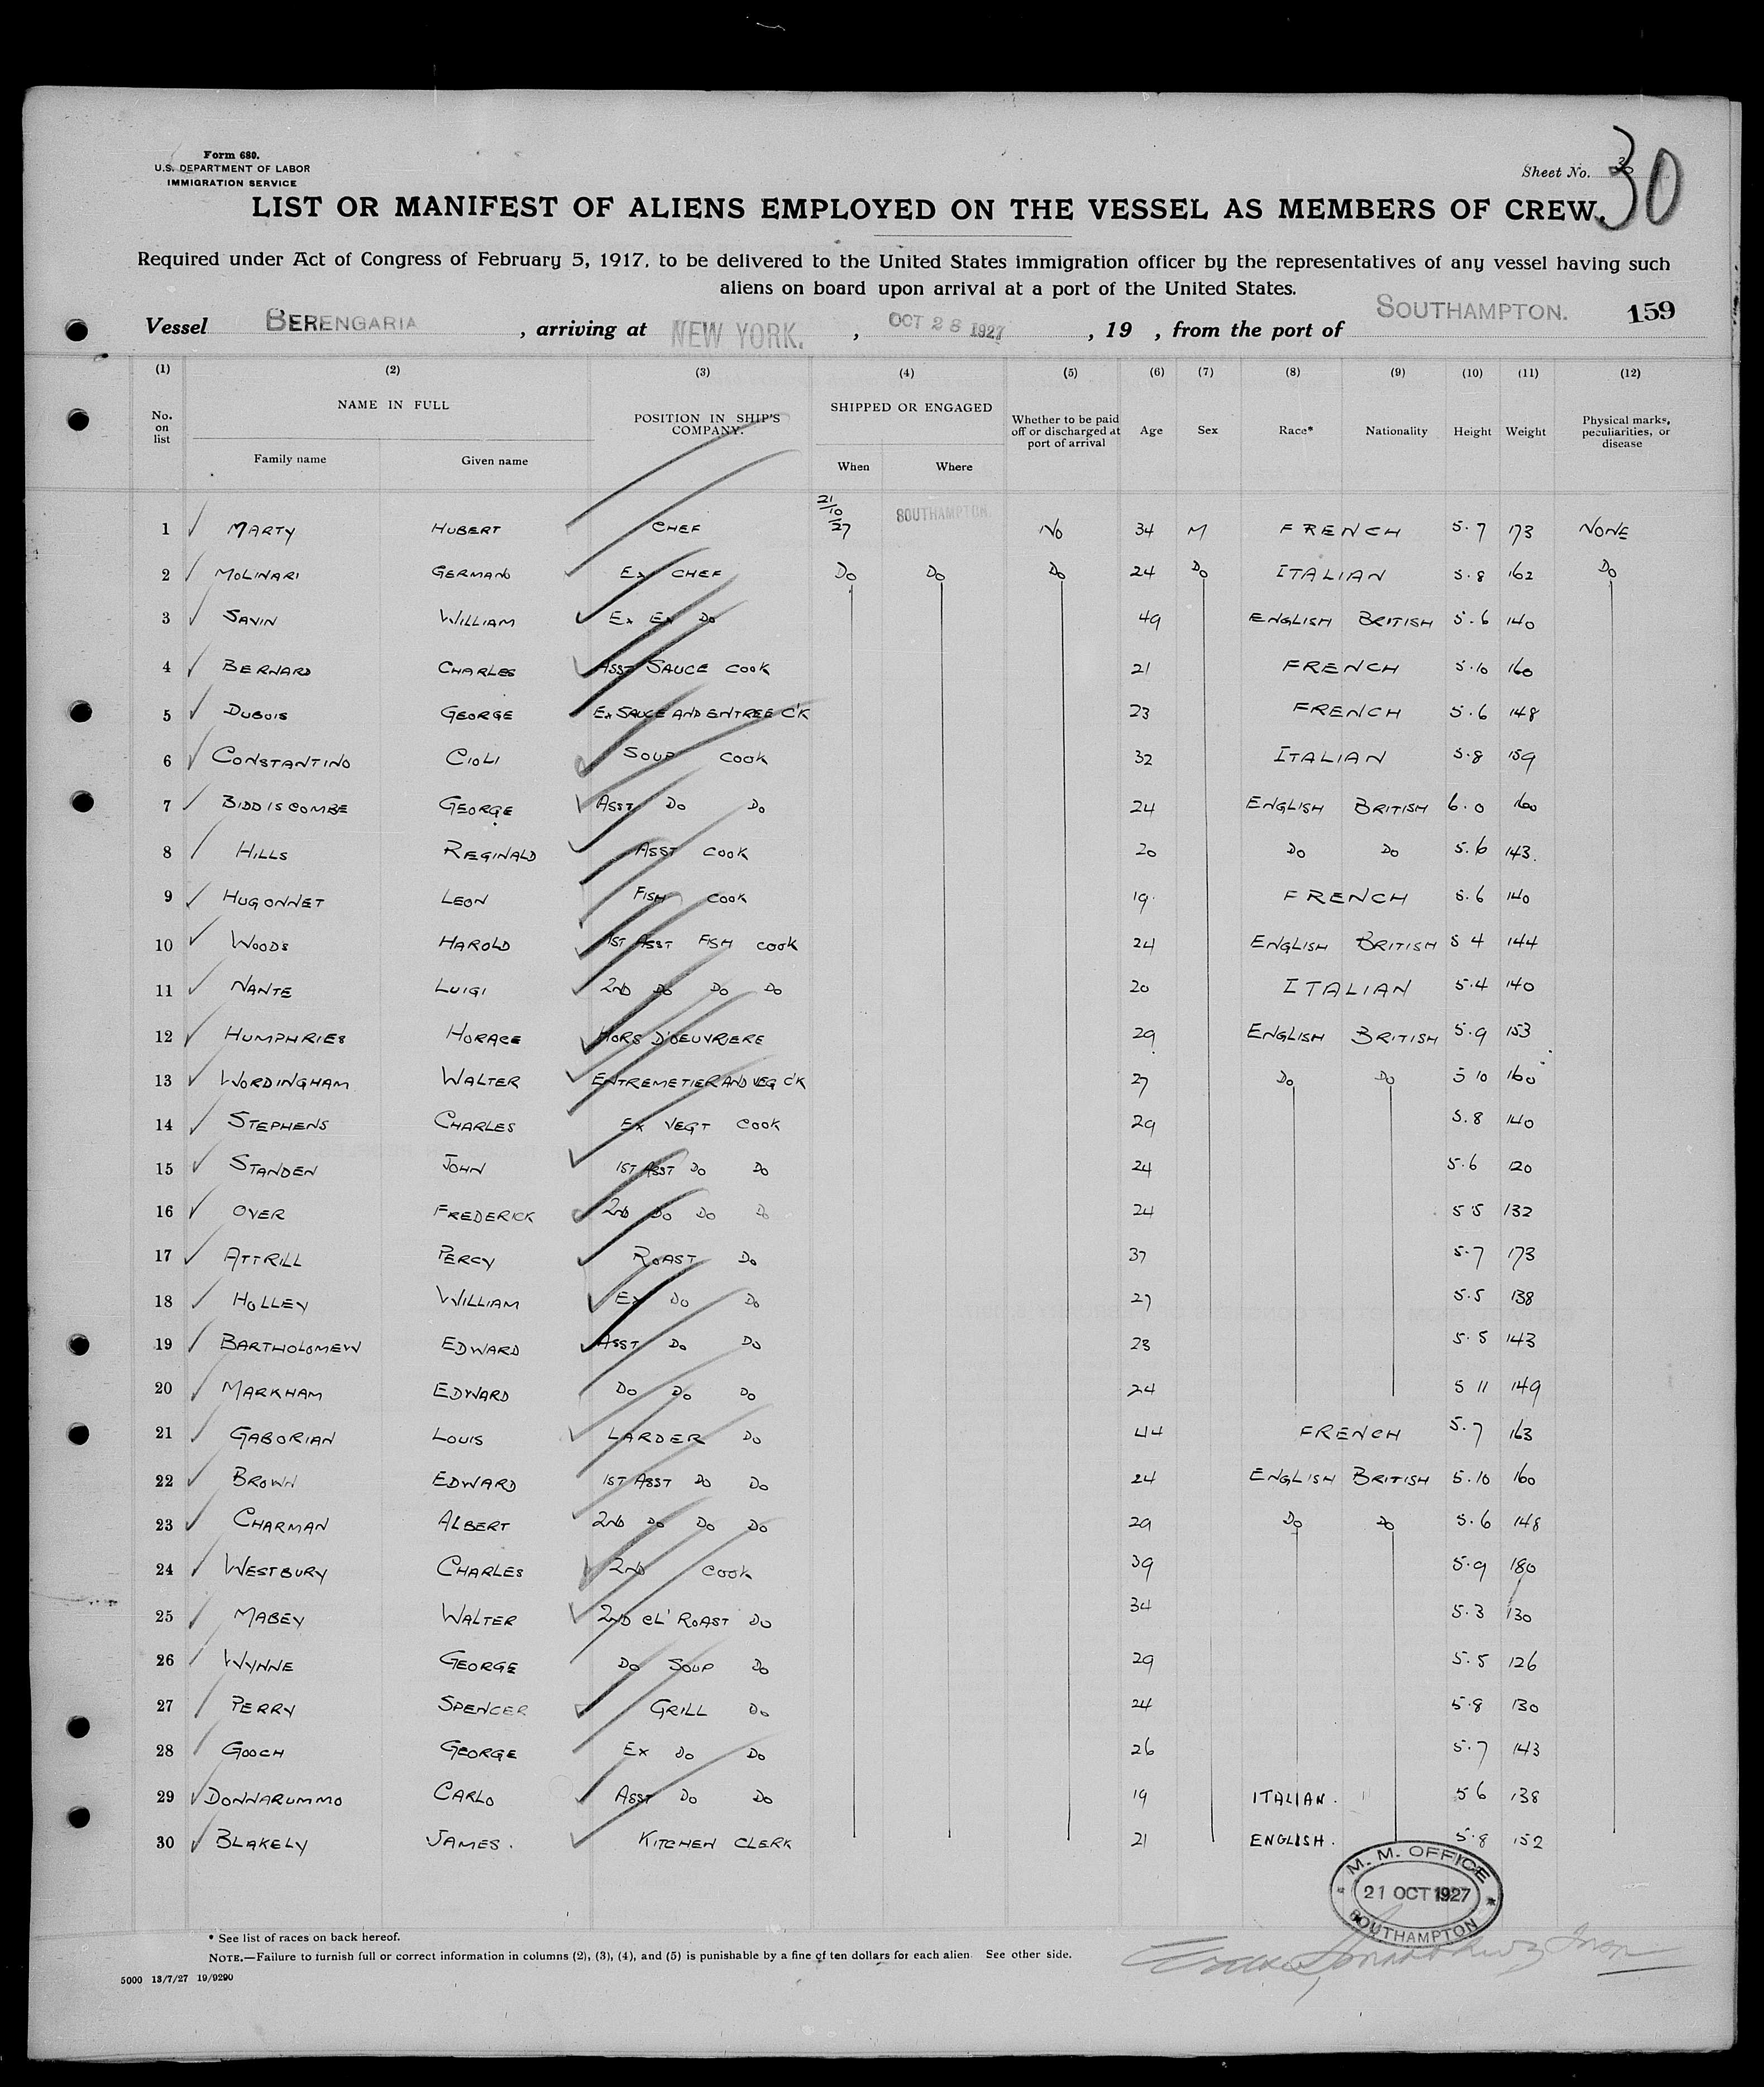 Form 680.
U.S. DEPARTMENT OF LABOR
IMMIGRATION SERVICE
Sheet No. 30
LIST OR MANIFEST OF ALIENS EMPLOYED ON THE VESSEL AS MEMBERS OF CREW.
Required under Act of Congress of February 5, 1917, to be delivered to the United States immigration officer by the representatives of any vessel having such
aliens on board upon arrival at a port of the United States.
Vessel BERENGARIA, arriving at NEW YORK., OCT 26 1927, 19 , from the port of SOUTHAMPTON. 159
(1) (2) (3) (4) (5) (6) (7) (8) (9) (10) (11) (12)
No. on list NAME IN FULL Family name Given name POSITION IN SHIP'S COMPANY. SHIPPED OR ENGAGED When Where Whether to be paid off or discharged at port of arrival Age Sex Race* Nationality Height Weight Physical marks, peculiarities, or disease
1 MARTY HUBERT CHEF 21/10/27 SOUTHAMPTON. NO 34 M FRENCH 5.7 173 NONE
2 MOLINARI GERMANO Ex CHEF Do Do Do 24 Do ITALIAN 5.8 162 Do
3 SAVIN WILLIAM Ex Ex Do 49 ENGLISH BRITISH 5.6 140
4 BERNARD CHARLES ASST SAUCE COOK 21 FRENCH 5.10 160
5 DUBOIS GEORGE Ex SAUCE AND ENTREE C'K 23 FRENCH 5.6 148
6 CONSTANTINO CIOLI SOUP COOK 32 ITALIAN 5.8 159
7 BIDDISCOMBE GEORGE ASST Do Do 24 ENGLISH BRITISH 6.0 160
8 HILLS REGINALD ASST COOK 20 Do Do 5.6 143.
9 HUGONNET LEON FISH COOK 19 FRENCH 5.6 140
10 WOODS HAROLD 1ST ASST FISH COOK 24 ENGLISH BRITISH 5 4 144
11 NANTE LUIGI 2ND Do Do Do 20 ITALIAN 5.4 140
12 HUMPHRIES HORACE HORS D'OEUVRIERE 29 ENGLISH BRITISH 5.9 153
13 WORDINGHAM WALTER ENTREMETIER AND VEG C'K 27 Do Do 5 10 160
14 STEPHENS CHARLES Ex VEGT COOK 29 5.8 140
15 STANDEN JOHN 1ST ASST Do Do 24 5.6 120
16 OVER FREDERICK 2ND Do Do Do 24 5.5 132
17 ATTRILL PERCY ROAST Do 37 5.7 173
18 HOLLEY WILLIAM Ex Do Do 27 5.5 138
19 BARTHOLOMEW EDWARD ASST Do Do 23 5.5 143
20 MARKHAM EDWARD Do Do Do 24 5 11 149
21 GABORIAN LOUIS LARDER Do 44 FRENCH 5.7 163
22 BROWN EDWARD 1ST ASST Do Do 24 ENGLISH BRITISH 5.10 160
23 CHARMAN ALBERT 2ND Do Do Do 29 Do Do 5.6 148
24 WESTBURY CHARLES 2ND COOK 39 5.9 180
25 MABEY WALTER 2ND CL' ROAST Do 34 5.3 130
26 WYNNE GEORGE Do SOUP Do 29 5.5 126
27 PERRY SPENCER GRILL Do 24 5.8 130
28 GOOCH GEORGE Ex Do Do 26 5.7 143
29 DONNARUMMO CARLO ASST Do Do 19 ITALIAN. 5 6 138
30 BLAKELY JAMES. KITCHEN CLERK 21 ENGLISH. 5.8 152
M. M. OFFICE
21 OCT 1927
SOUTHAMPTON
* See list of races on back hereof.
NOTE.—Failure to furnish full or correct information in columns (2), (3), (4), and (5) is punishable by a fine of ten dollars for each alien. See other side.
5000 13/7/27 19/9290